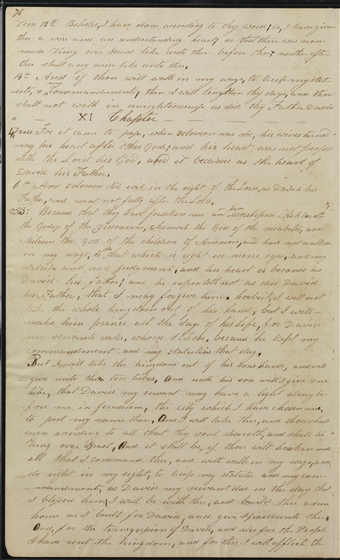 76
Ver 12th Behold, I have done according to thy word; lo, I have given
thee a wise and an understanding heart so that there was none
made King over Israel like unto thee before thee, neither after
thee shall any arise like unto thee.
14th And if thou wilt walk in my ways, to keep my stat-
utes, & Commandments, then I will lengthen thy days, and thou
shall not walk in unrighteousness as did thy Father David
XI Chapter
For it came to pass, when Solomon was old, his wives turned
away his heart after other Gods, and his heart was not perfect
with the Lord his God, and it became as the heart of
David his Father.
6th And Solomon did evil in the sight of the Lord, as David his
Father, and went not fully after the Lord.
33 Because that they have forsaken me and have worshiped Ashtaroth
the Goddess of the Zidonians, Chemosh the God of the Moabites, and
Milcom the God of the children of Ammon, and have not walked
in my ways, to do that which is right in mine eyes, and my
statutes and my judgments, and his heart is become as
David his father; and he repenteth not as did David
his Father, that I may forgive him. howbeit, I will not
take the whole kingdom out of his hand, but I will
make him prince all the days of his life, for David
my servants sake, whom I chose, because he kept my
Commandments and my statutes that day.
But I will take the kingdom out of his sons hand, and will
give unto thee ten tribes, And unto his son will I give one
tribe, that David my servant may have a light always be-
fore me in Jerusalem, the city which I have chosen me,
to put my name there, And I will take thee, and thou shalt
reign according to all that thy soul desireth, and shalt be
King over Israel, And it shall be, if thou wilt hearken unto
all that I command thee, and wilt walk in my ways, and
do right in my sight, to keep my statutes and my com
mandments, as David my servant did in the day that
I blessed him; I will be with thee, and build thee a sure
house as I built for David, and give Israel unto thee.
And, for the transgression of David, and also for the People
I have rent the kingdom, and for this I will afflict the